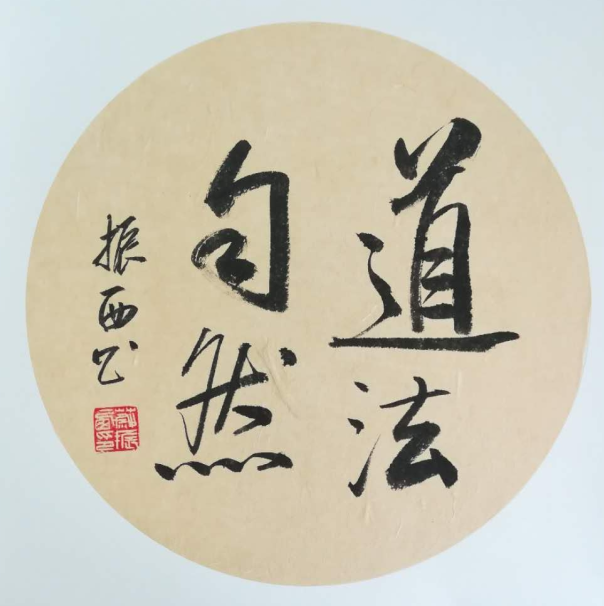 道法
自然
振西书